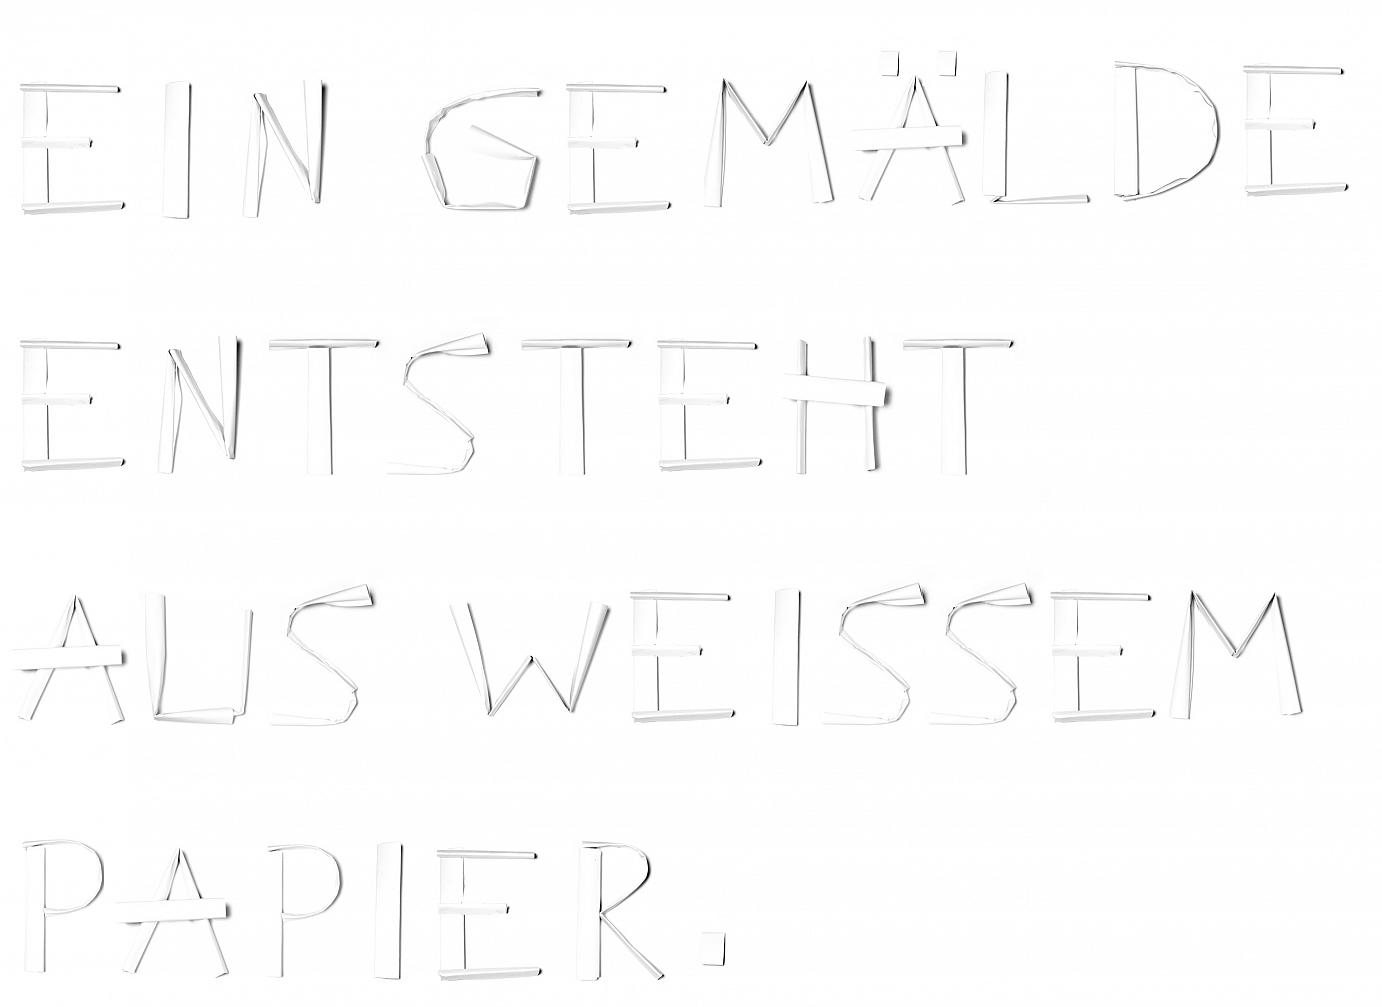 EIN GEMÄLDE
ENTSTEHT
AUS WEISSEM
PAPIER.